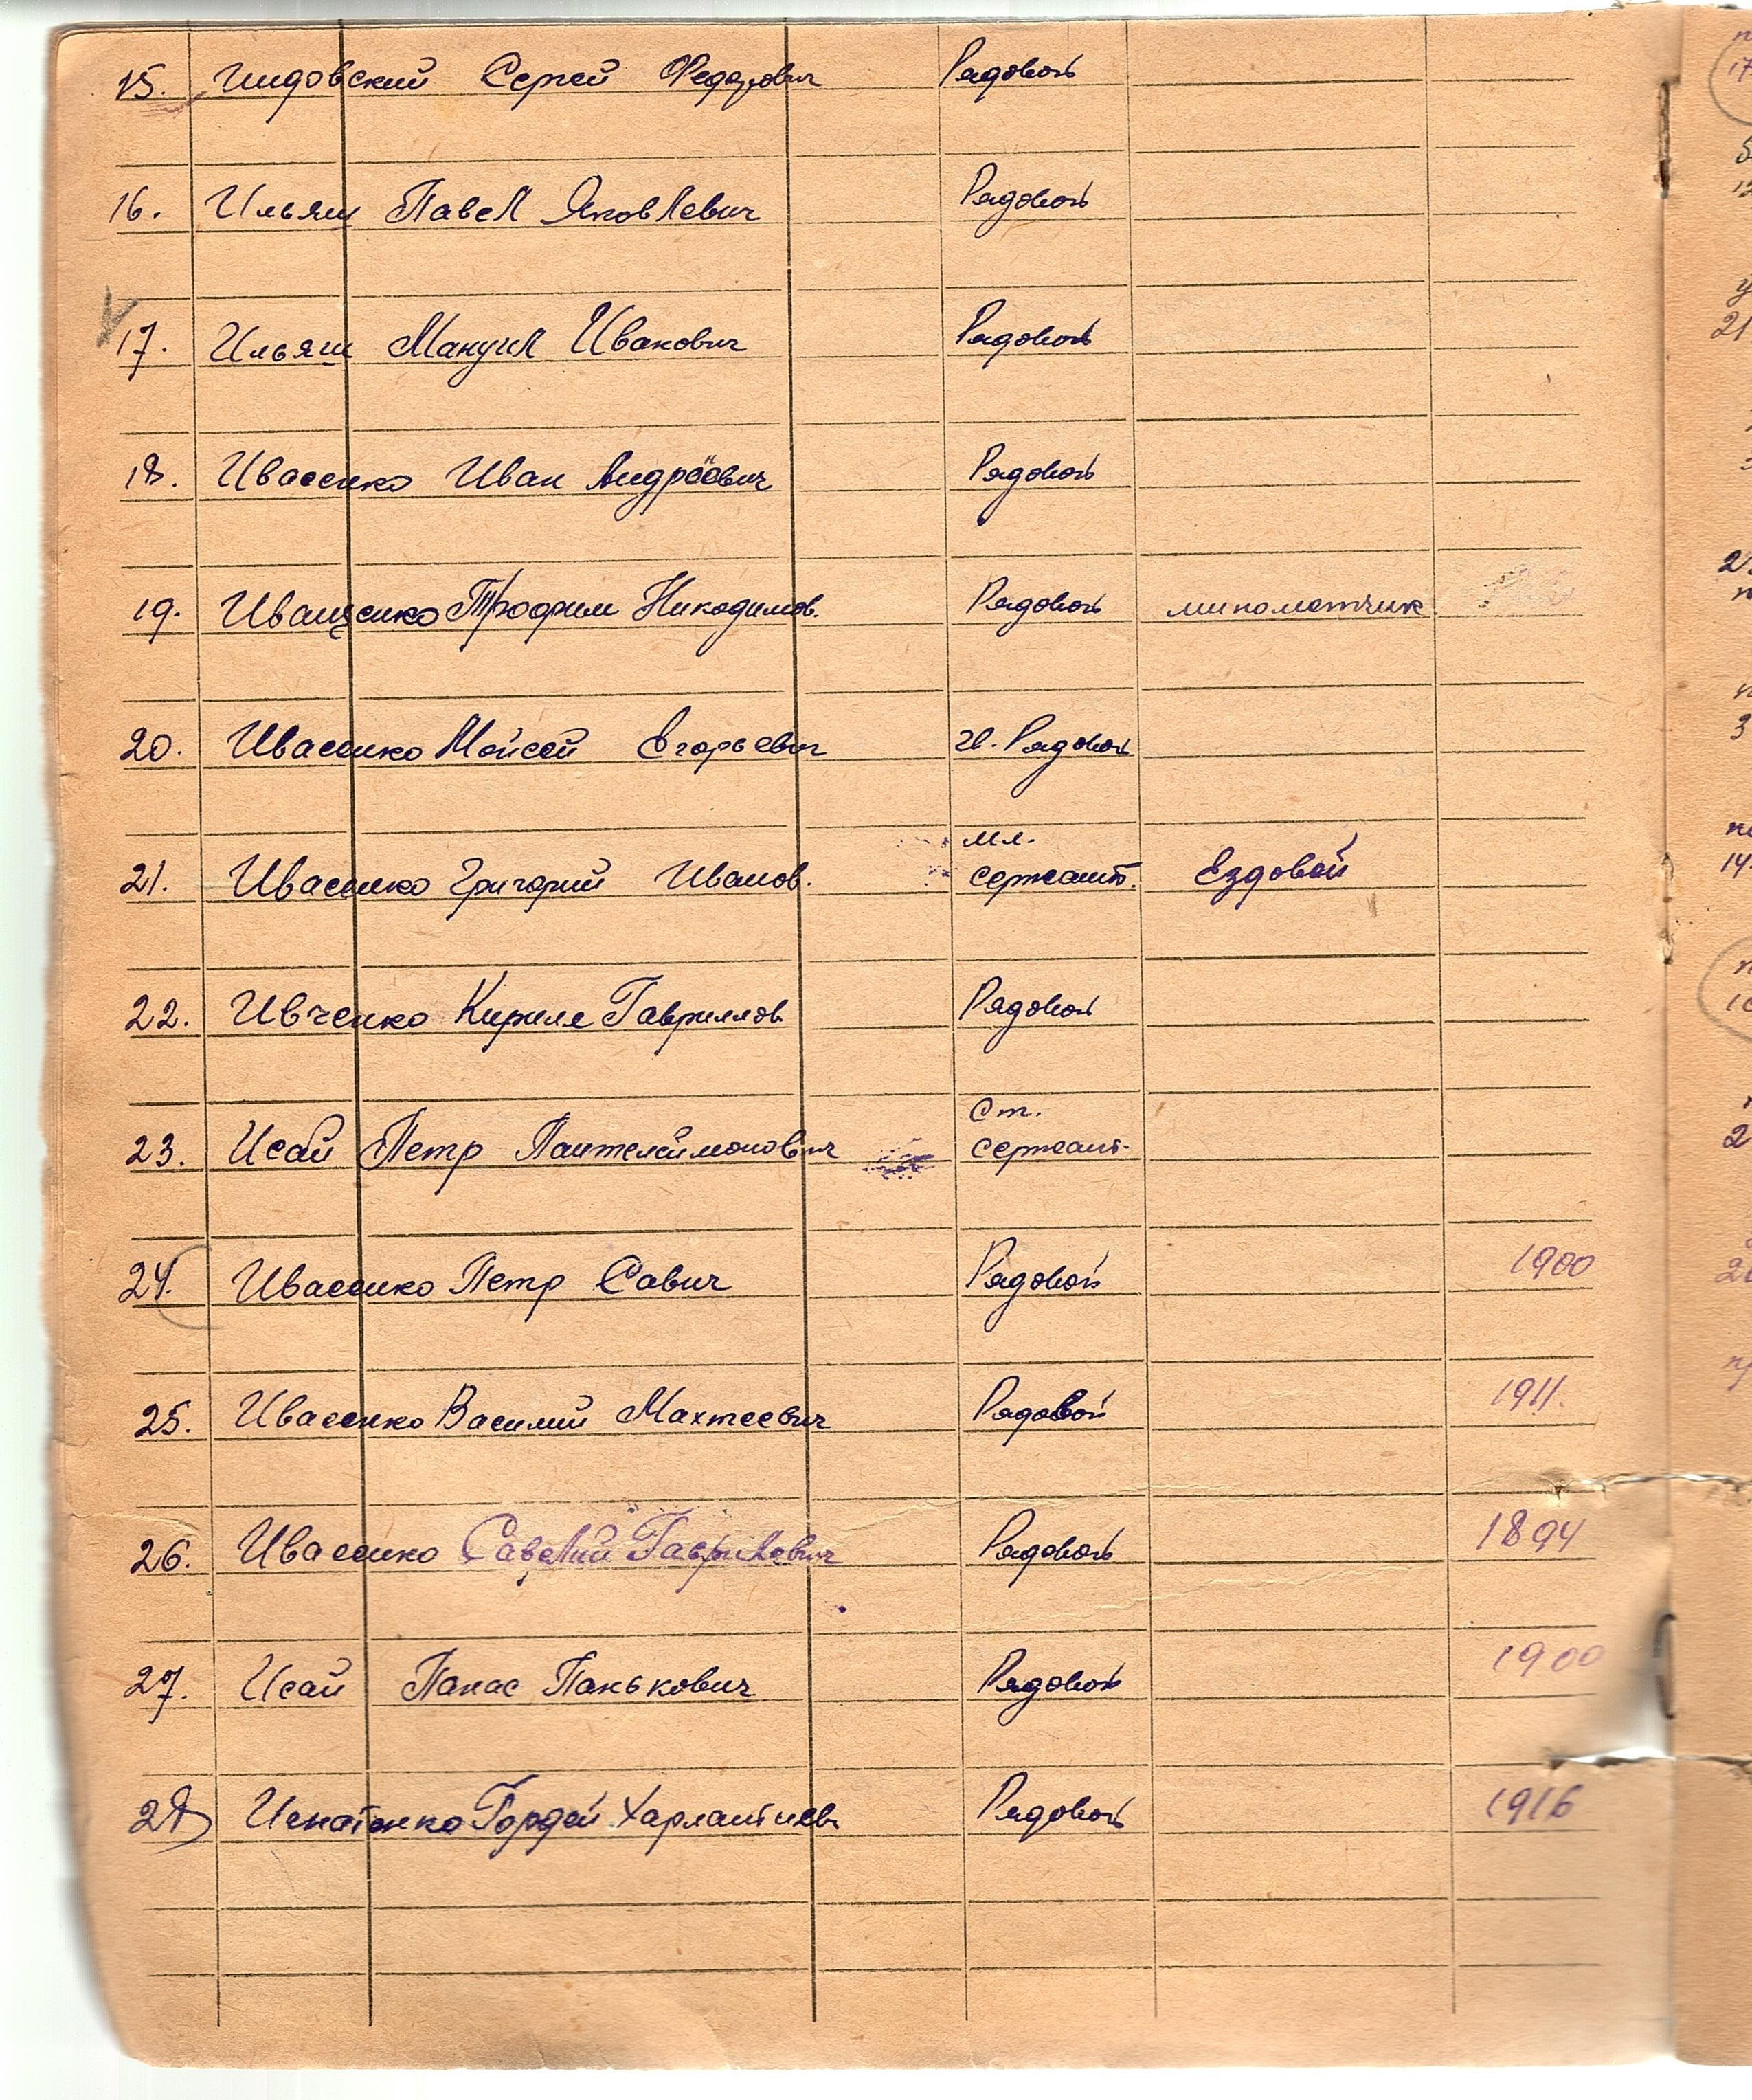 15. Гиидовский Сергей Федорович Рядовой
16. Ильяш Павел Яковлевич Рядовой
17. Ильяш Мануил Иванович Рядовой
18. Ивасенко Иван Андреевич Рядовой
19. Иващенко Трофим Никодимов. Рядовой минометчик
20. Ивасенко Мойсей Егорьевич гв. Рядовой
мл.
21. Ивасенко Григорий Иванов. сержант. Ездовой
22. Ивченко Кирилл Гаврилов Рядовой
Ст.
23. Исай Петр Пантелеймонович сержант.
24. Ивасенко Петр Савич Рядовой 1900
25. Ивасенко Василий Махтеевич Рядовой 1911.
26. Ивасенко Савелий Гаврилевич Рядовой 1894
27. Исай Панас Панькович Рядовой 1900
28 Игнатенко Гордей Харлантиев Рядовой 1916